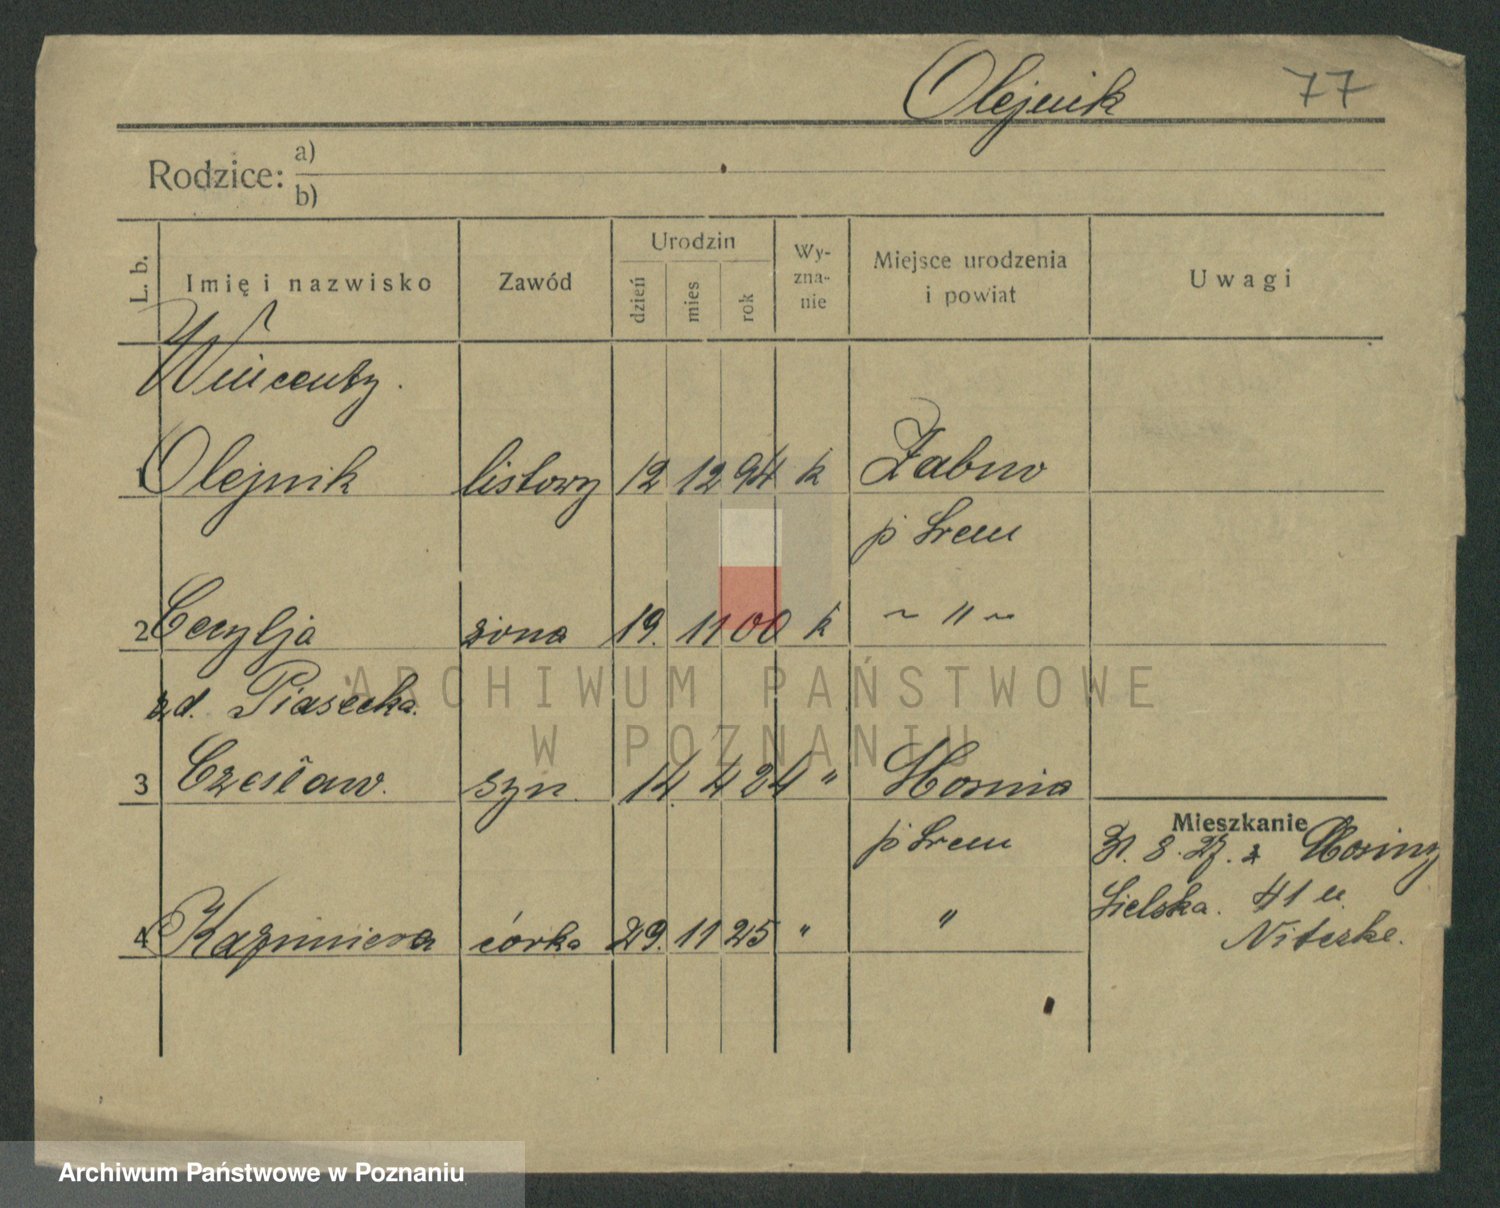 Olejnik 77
Rodzice: a)
b)
L. b. Imię i nazwisko Zawód Urodzin dzień mies rok Wy-zna-nie Miejsce urodzenia i powiat Uwagi
Wincenty.
1 Olejnik listowy 12 12 94 k Żabno
p Śrem
2 Cecylja żona 19. 11 00 k ~ " ~
z d. Piasecka.
3 Czesław. syn. 14. 4 24 " Mosina
p Śrem
Mieszkanie
31. 8. 27. z Mosiny
4 Kazimiera córka 29. 11 25 " "
41 u
Niteske.
ARCHIWUM PAŃSTWOWE
W POZNANIU
Archiwum Państwowe w Poznaniu